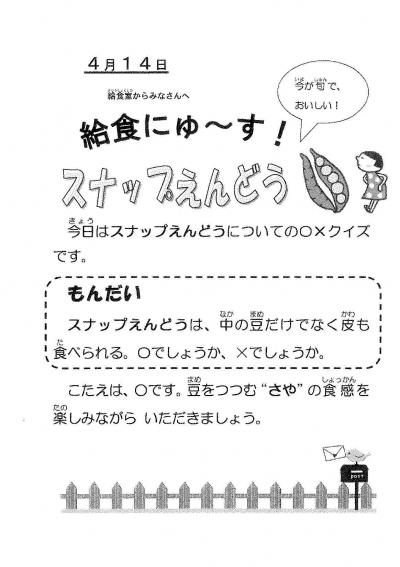 4月14日
給食室からみなさんへ
今が旬で、
おいしい！
給食にゅ～す！
スナップえんどう
今日はスナップえんどうについての○×クイズ
です。
もんだい
スナップえんどうは、中の豆だけでなく皮も
食べられる。○でしょうか、×でしょうか。
こたえは、○です。豆をつつむ“さや”の食感を
楽しみながら いただきましょう。
POST